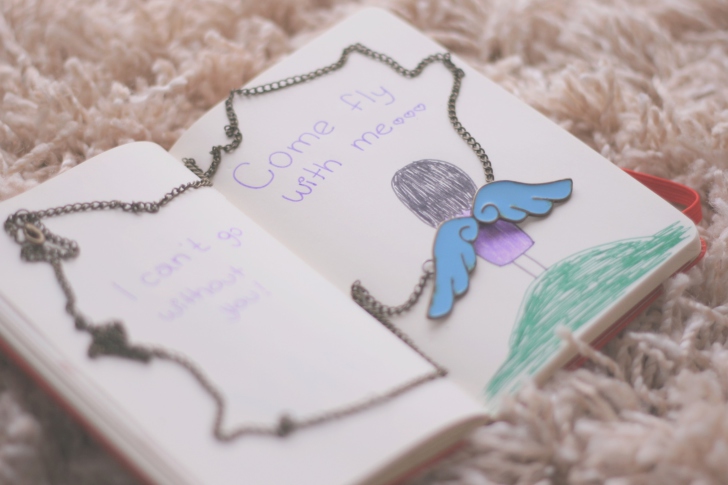 I can't go
without
you!
Come fly
with me...